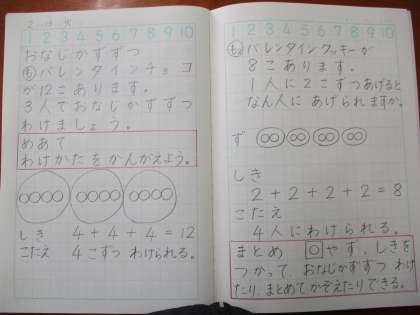 2 13 火
1 2 3 4 5 6 7 8 9 10
おなじかずずつ
も バレンタインチョコ
が12こあります。
3人でおなじかずずつ
わけましょう。
めあて
わけかたをかんがえよう。
しき 4+4+4=12
こたえ 4こずつ わけられる。
1 2 3 4 5 6 7 8 9 10
も バレンタインクッキーが
8こあります。
1人に2こずつあげると
なん人に あげられますか。
ず
しき
2+2+2+2=8
こたえ
4人にわけられる。
まとめ ○やず、しきを
つかって、おなじかずずつ わけ
たり、まとめてかぞえたりできる。